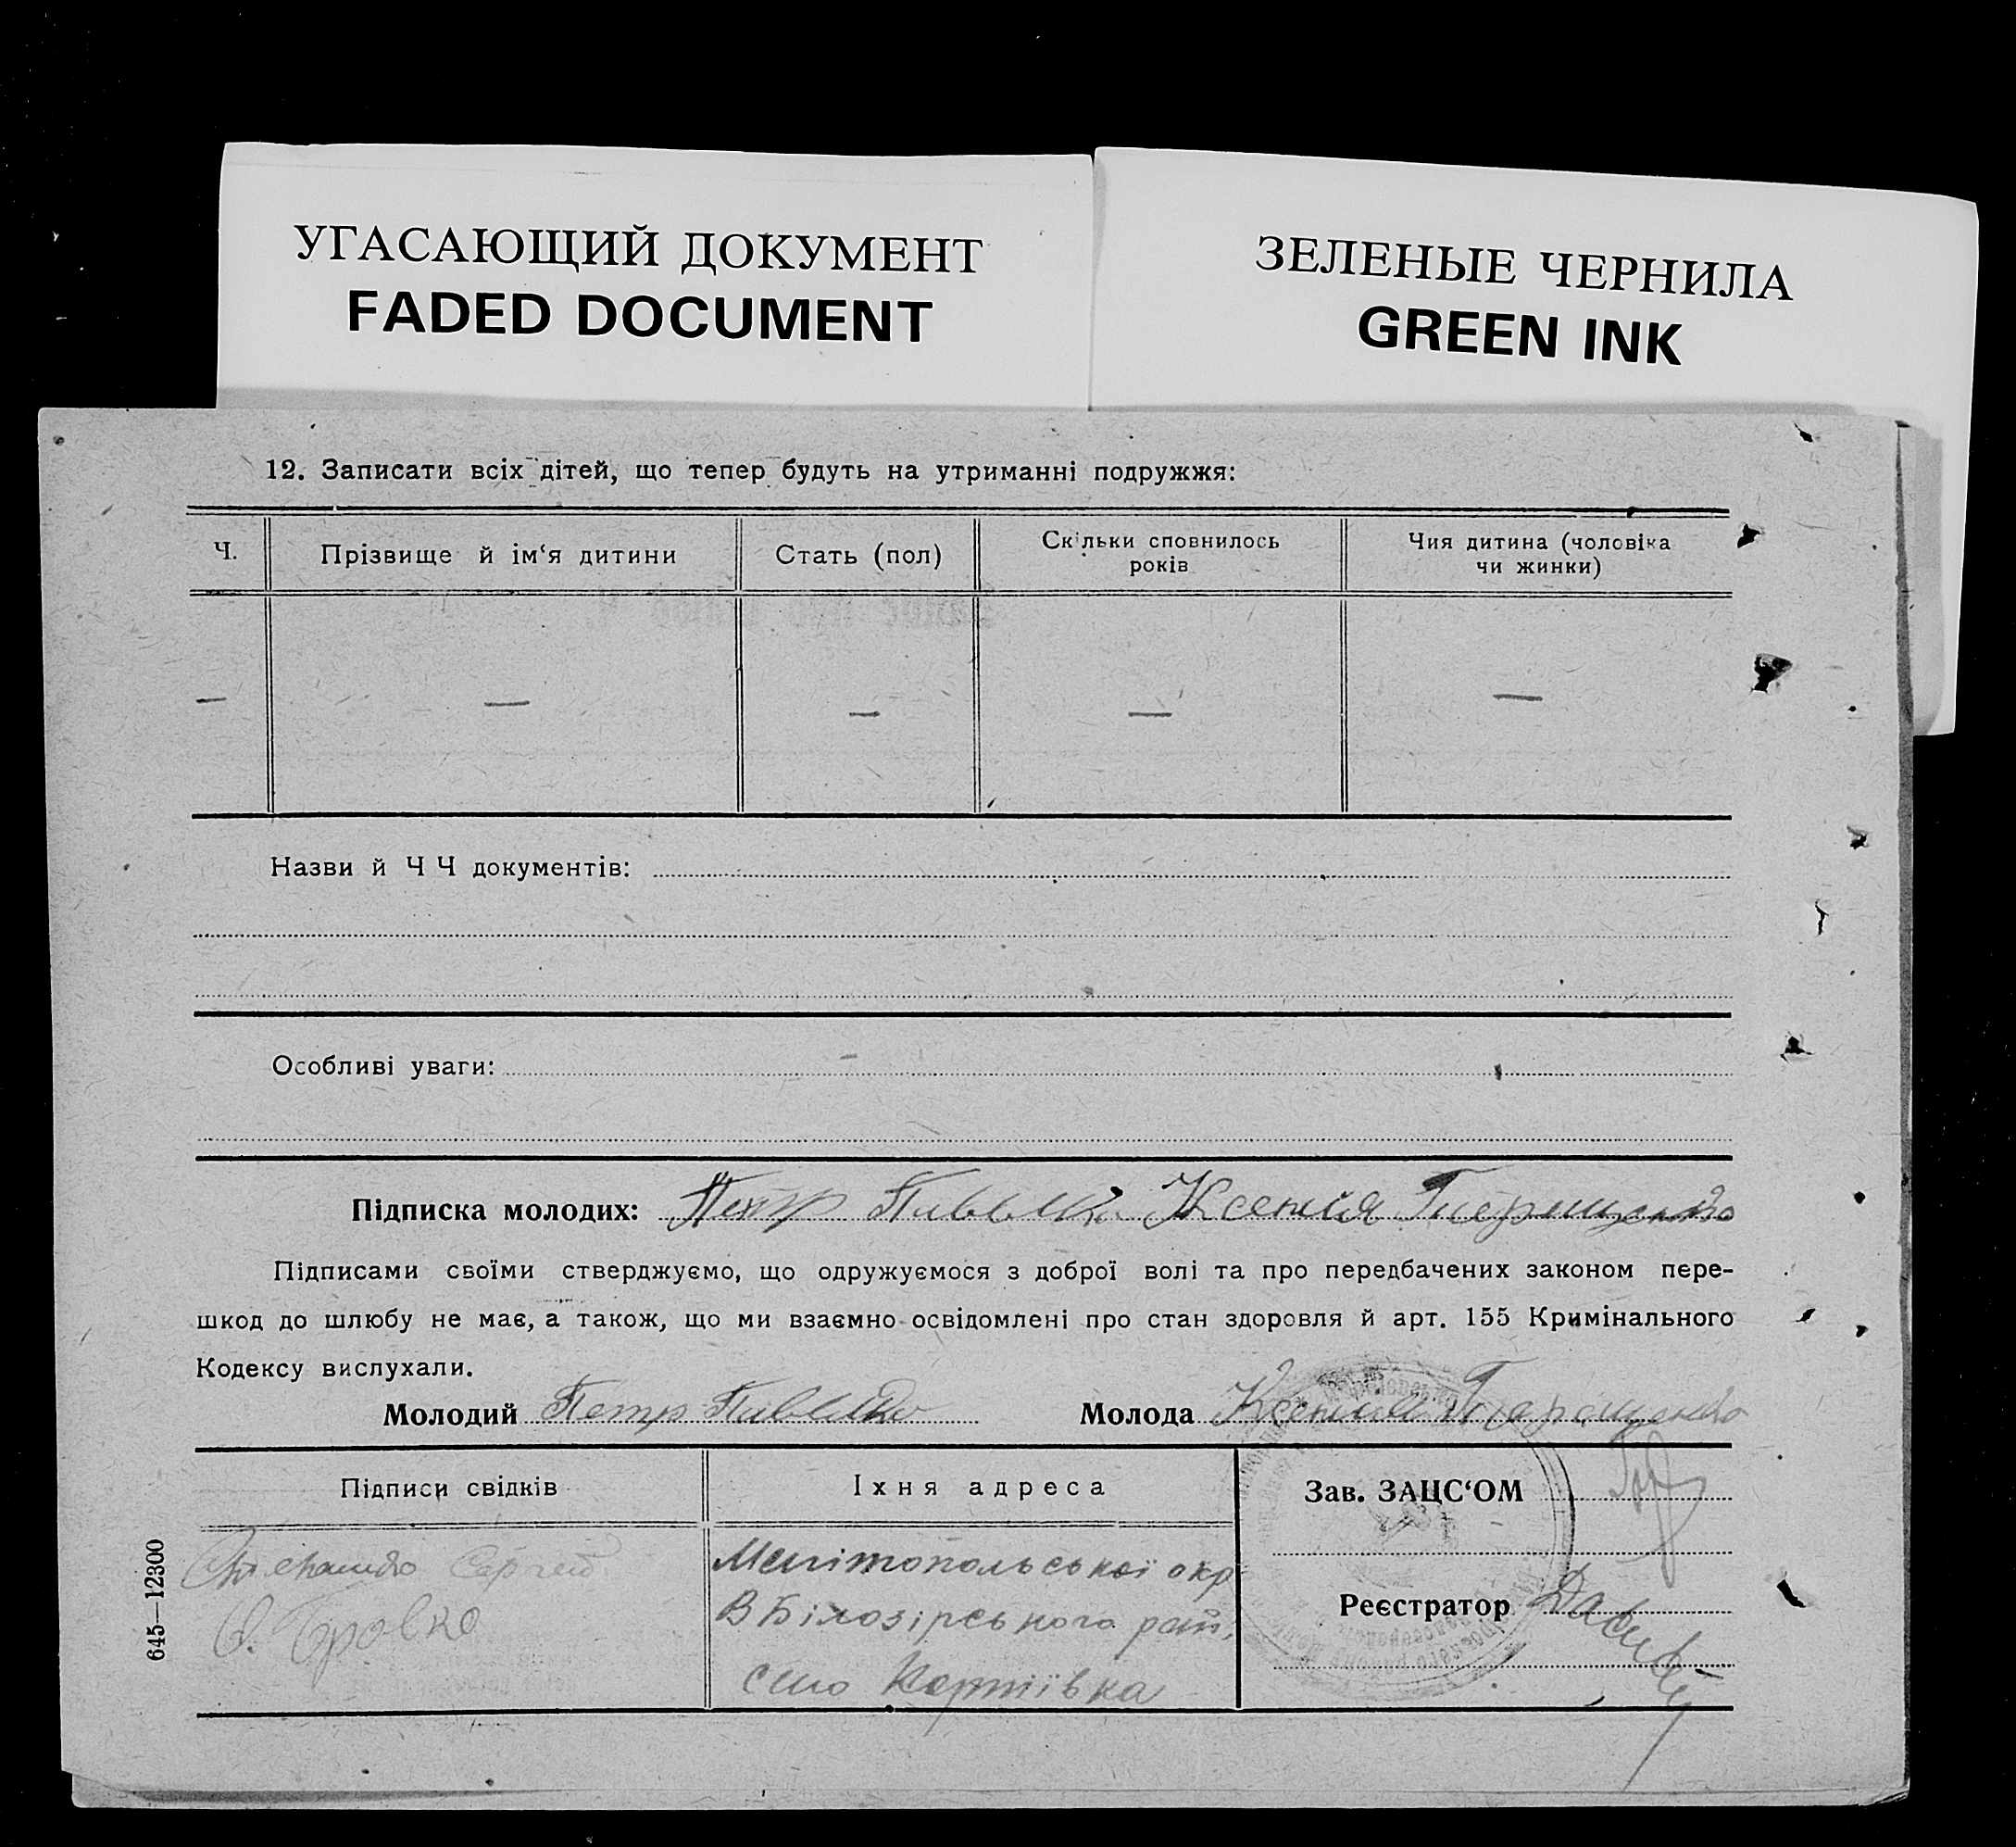 УГАСАЮЩИЙ ДОКУМЕНТ
FADED DOCUMENT
ЗЕЛЕНЫЕ ЧЕРНИЛА
GREEN INK
12. Записати всіх дітей, що тепер будуть на утриманні подружжя:
Ч. Прізвище й ім‘я дитини Стать (пол) Скільки сповнилось років Чия дитина (чоловіка чи жинки)
— — — — —
Назви й Ч Ч документів:
Особливі уваги: —
Підписка молодих: Петр Ксенія
Підписами своїми стверджуємо, що одружуємося з доброї волі та про передбачених законом пере-
шкод до шлюбу не має, а також, що ми взаємно освідомлені про стан здоровля й арт. 155 Кримінального
Кодексу вислухали.
Молодий Петр Молода Ксенія
Підписи свідків Їхня адреса Зав. ЗАЦС‘ОМ
Сергей Мелітопольської окр
Бровко В Білозірського рай.
Реєстратор
село
645—12300